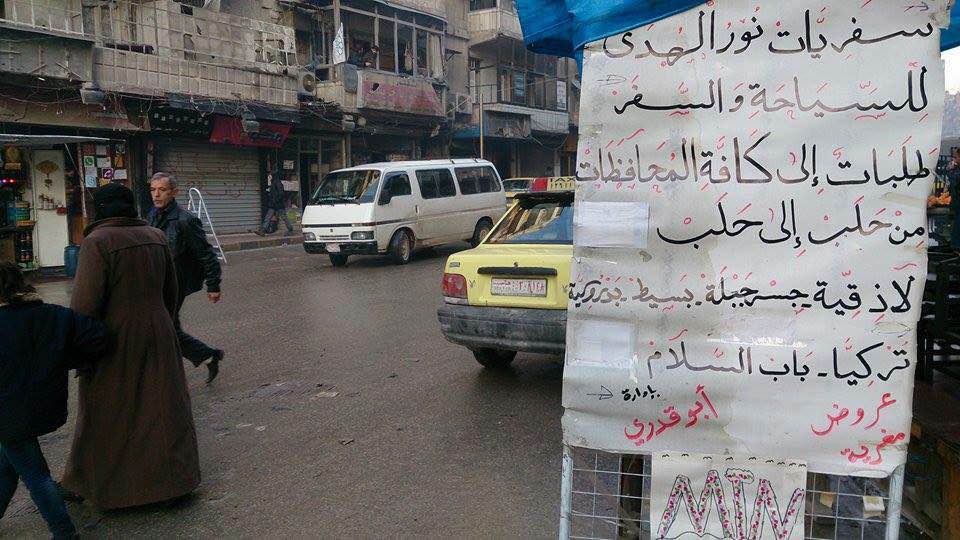 سَفَريَّات نُورُ الهُدَى
لِلسِّيَاحَةِ وَالسَّفَر
طَلَبَات إِلى كَافَّةِ المُحَافَظَات
مِنْ حَلَبْ إِلى حَلَبْ
لَاذقِيّة جِسر جَبْلَة بَسِيط
تركيَّا - بَاب السَّلَام
بإدارة
أبو قدري
عروض
مغرية
MTN